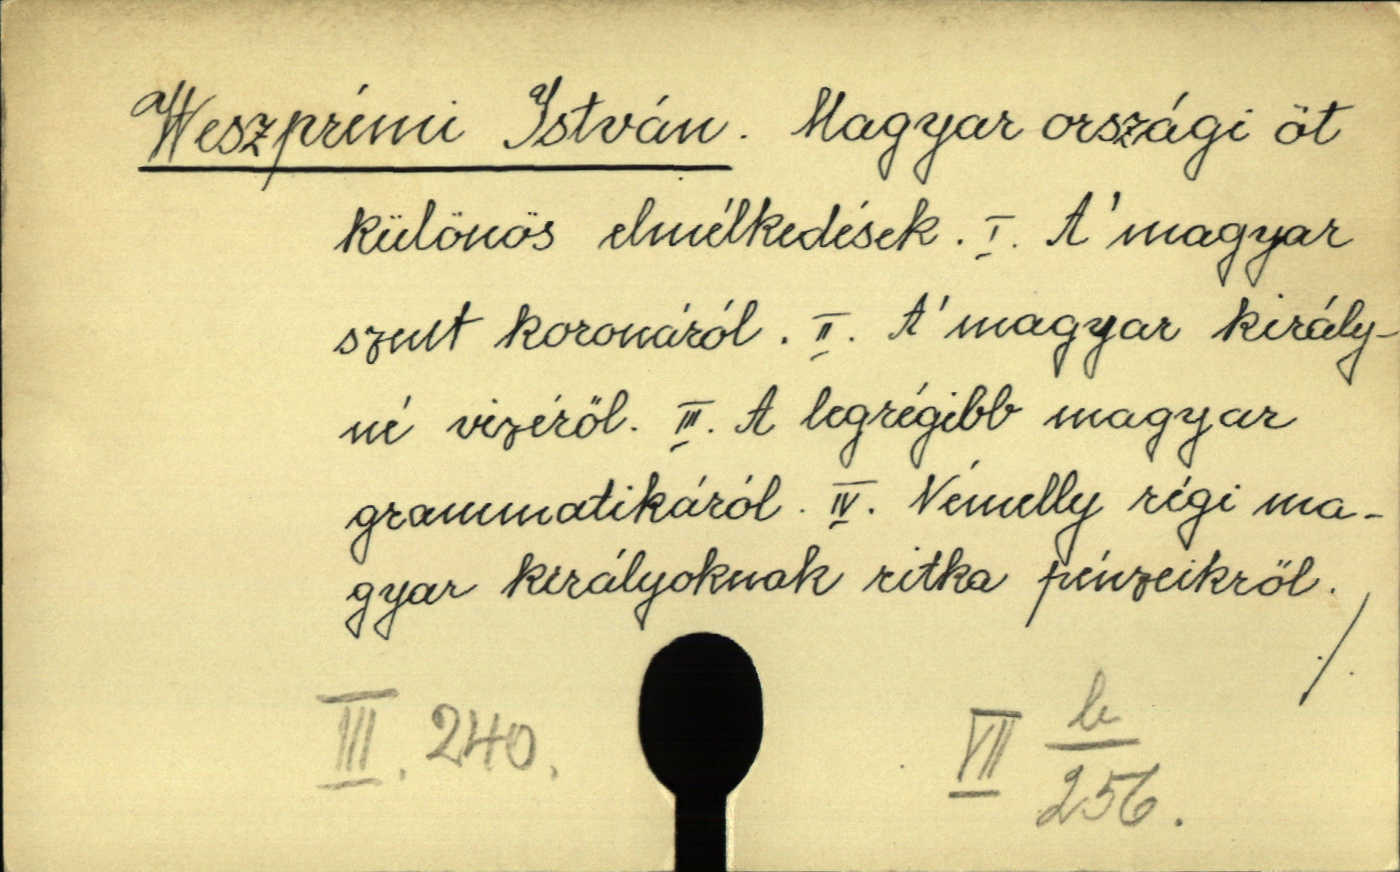 Weszprémi István. Magyar országi öt
különös elmélkedések. I. A' magyar
szent koronáról. II. A' magyar király-
né vizéről. III. A legrégibb magyar
grammatikáról. IV. Némelly régi ma-
gyar királyoknak ritka pénzeikről. /
III. 240.
VII b/256.